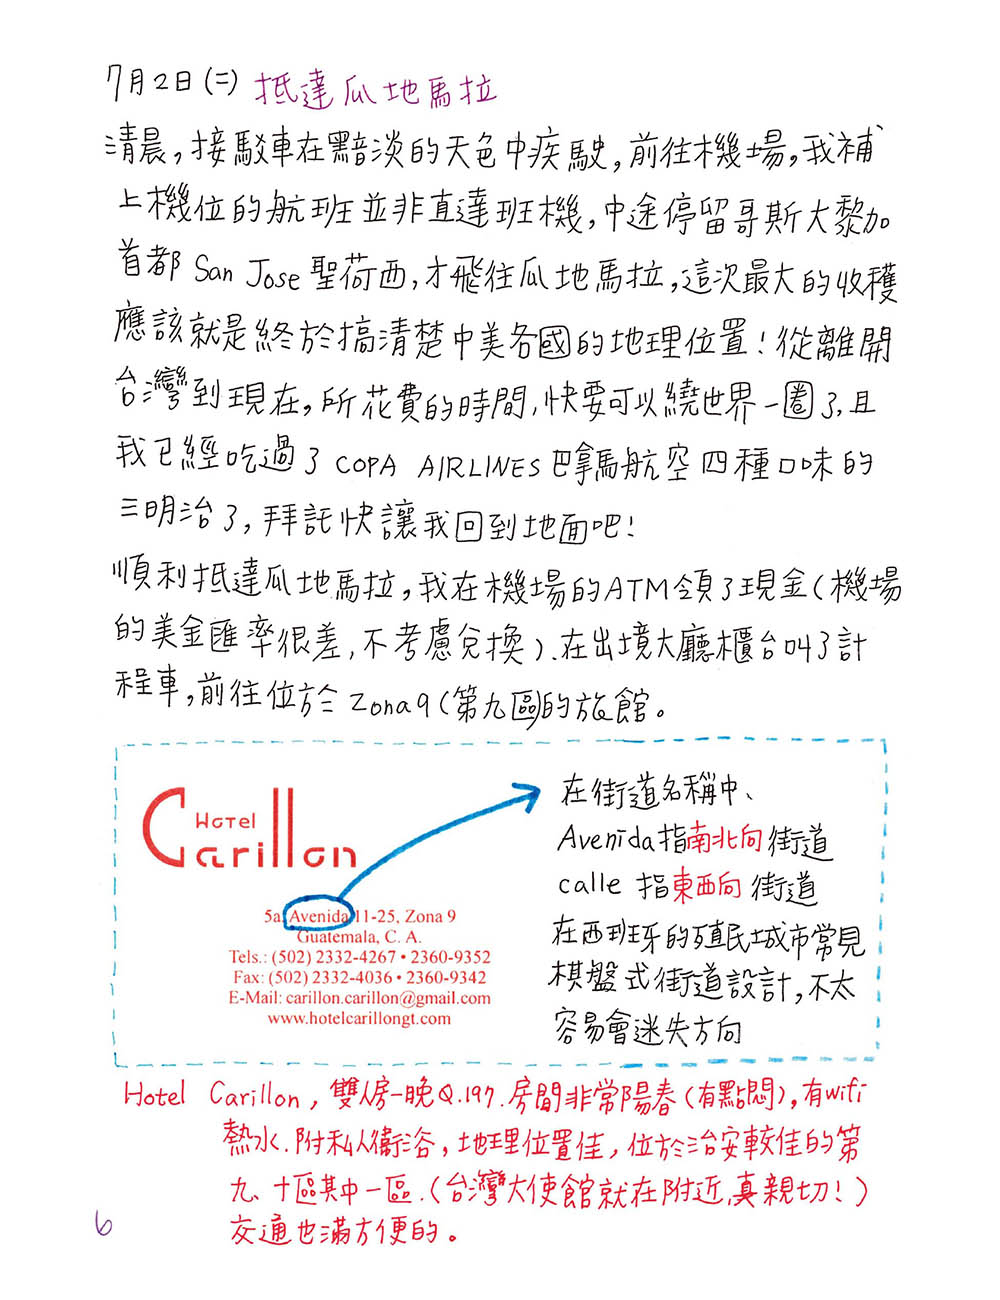 7月2日(二) 抵達瓜地馬拉
清晨,接駁車在黑暗淡的天色中疾駛,前往機場,我補
上機位的航班並非直達班機,中途停留哥斯大黎加
首都 San Jose 聖荷西,才飛往瓜地馬拉,這次最大的收穫
應該就是終於搞清楚中美各國的地理位置!從離開
台灣到現在,所花費的時間,快要可以繞世界一圈了,且
我已經吃過了 COPA AIRLINES 巴拿馬航空四種口味的
三明治了,拜託快讓我回到地面吧!
順利抵達瓜地馬拉,我在機場的ATM領了現金(機場
的美金匯率很差,不考慮兌換).在出境大廳櫃台叫了計
程車,前往位於Zona9(第九區)的旅館。
Hotel
Carillon
5a. Avenida 11-25, Zona 9
Guatemala, C. A.
Tels.: (502) 2332-4267 • 2360-9352
Fax: (502) 2332-4036 • 2360-9342
E-Mail: carillon.carillon@gmail.com
www.hotelcarillongt.com
在街道名稱中、
Avenida指南北向街道
calle 指東西向 街道
在西班牙的殖民城市常見
棋盤式街道設計,不太
容易會迷失方向
Hotel Carillon, 雙人房一晚Q.197.房間非常陽春(有點悶),有wifi
熱水.附私人衛浴,地理位置佳,位於治安較佳的第
九、十區其中一區.(台灣大使館就在附近,真親切!)
交通也滿方便的。
6